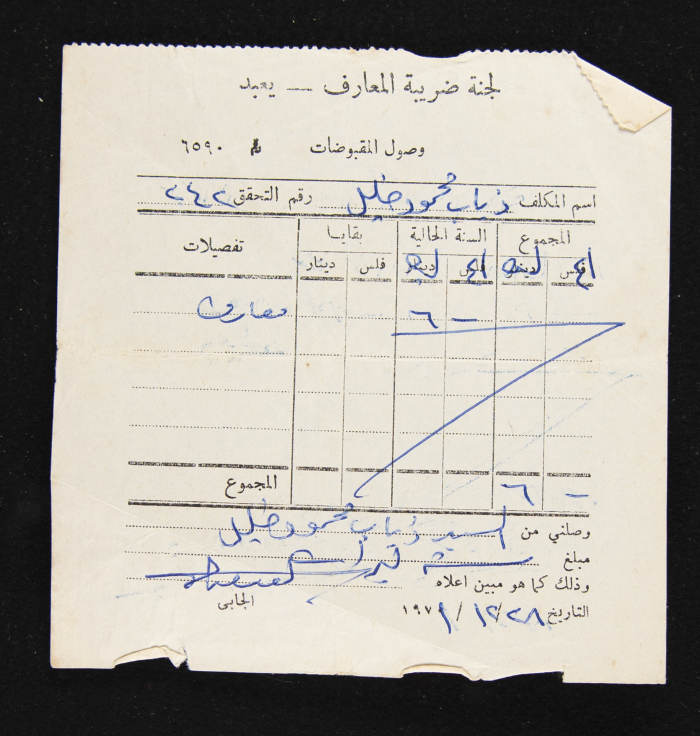 لجنة ضريبة المعارف — يعبد
وصول المقبوضات ٦٥٩٠
اسم المكلف ذياب محمود خليل رقم التحقق ٢٤٢
المجموع السنة الحالية بقايا تفصيلات
فلس دينار فلس دينار فلس دينار
— ٦ معارف
— ٦ المجموع
وصلني من السيد ذياب محمود خليل
مبلغ ستة ليرات
وذلك كما هو مبين اعلاه
الجابي
التاريخ ٢٨/١٢/١٩٧١